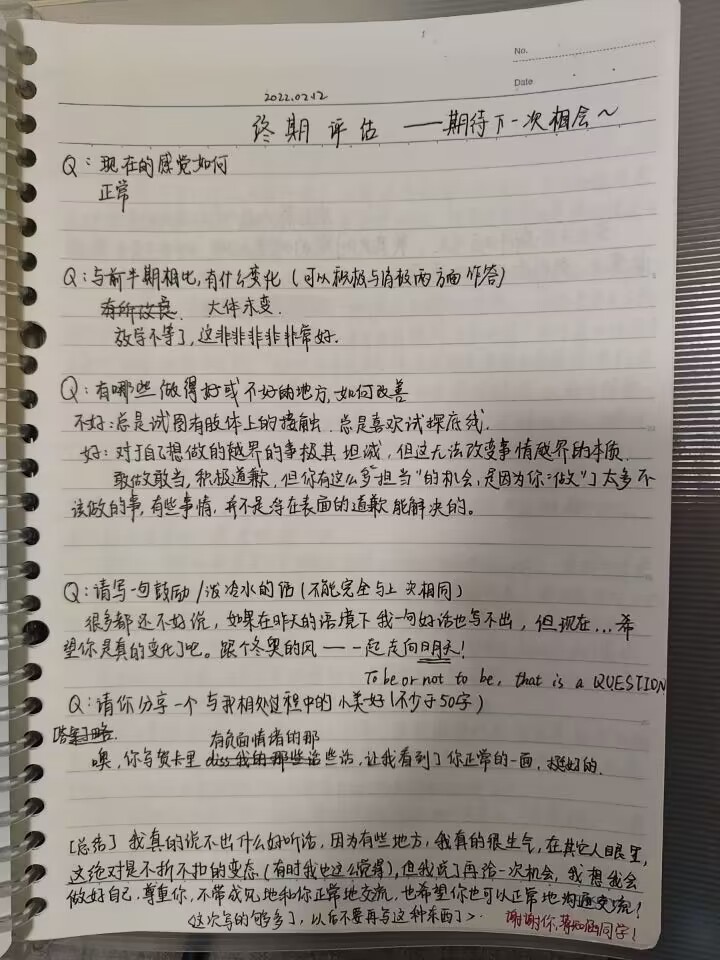 No.
Date
2022.02.12
终期评估 ——期待下一次相会~
Q:现在的感觉如何
正常
Q:与前半期相比,有什么变化(可以积极与消极两方面作答)
有所改良. 大体未变.
放学不等了,这非非非非非常好.
Q:有哪些做得好或不好的地方,如何改善
不好:总是试图有肢体上的接触.总是喜欢试探底线.
好:对于自己想做的越界的事极其坦诚,但这无法改变事情越界的本质.
敢做敢当,积极道歉,但你有这么多"担当"的机会,是因为你"做"了太多不
该做的事,有些事情,并不是停在表面的道歉能解决的。
Q:请写一句鼓励/泼冷水的话(不能完全与上次相同)
很多都还不好说,如果在昨天的语境下我一句好话也写不出,但现在...希
望你是真的变化了吧。跟个冬奥的风——一起走向明天!
To be or not to be, that is a QUESTION
Q:请你分享一个与我相处过程中的小美好(不少于50字)
[答案]略.
有负面情绪的那
噢,你写贺卡里diss我的那些话些话,让我看到了你正常的一面,挺好的.
[总结]我真的说不出什么好听话,因为有些地方,我真的很生气,在其它人眼里,
这绝对是不折不扣的变态(有时我也这么觉得),但我说了再给一次机会,我想我会
做好自己,尊重你,不带成见地和你正常地交流,也希望你也可以正常地沟通交流!
<这次写的够多了,以后不要再写这种东西了>.
谢谢你,同学!